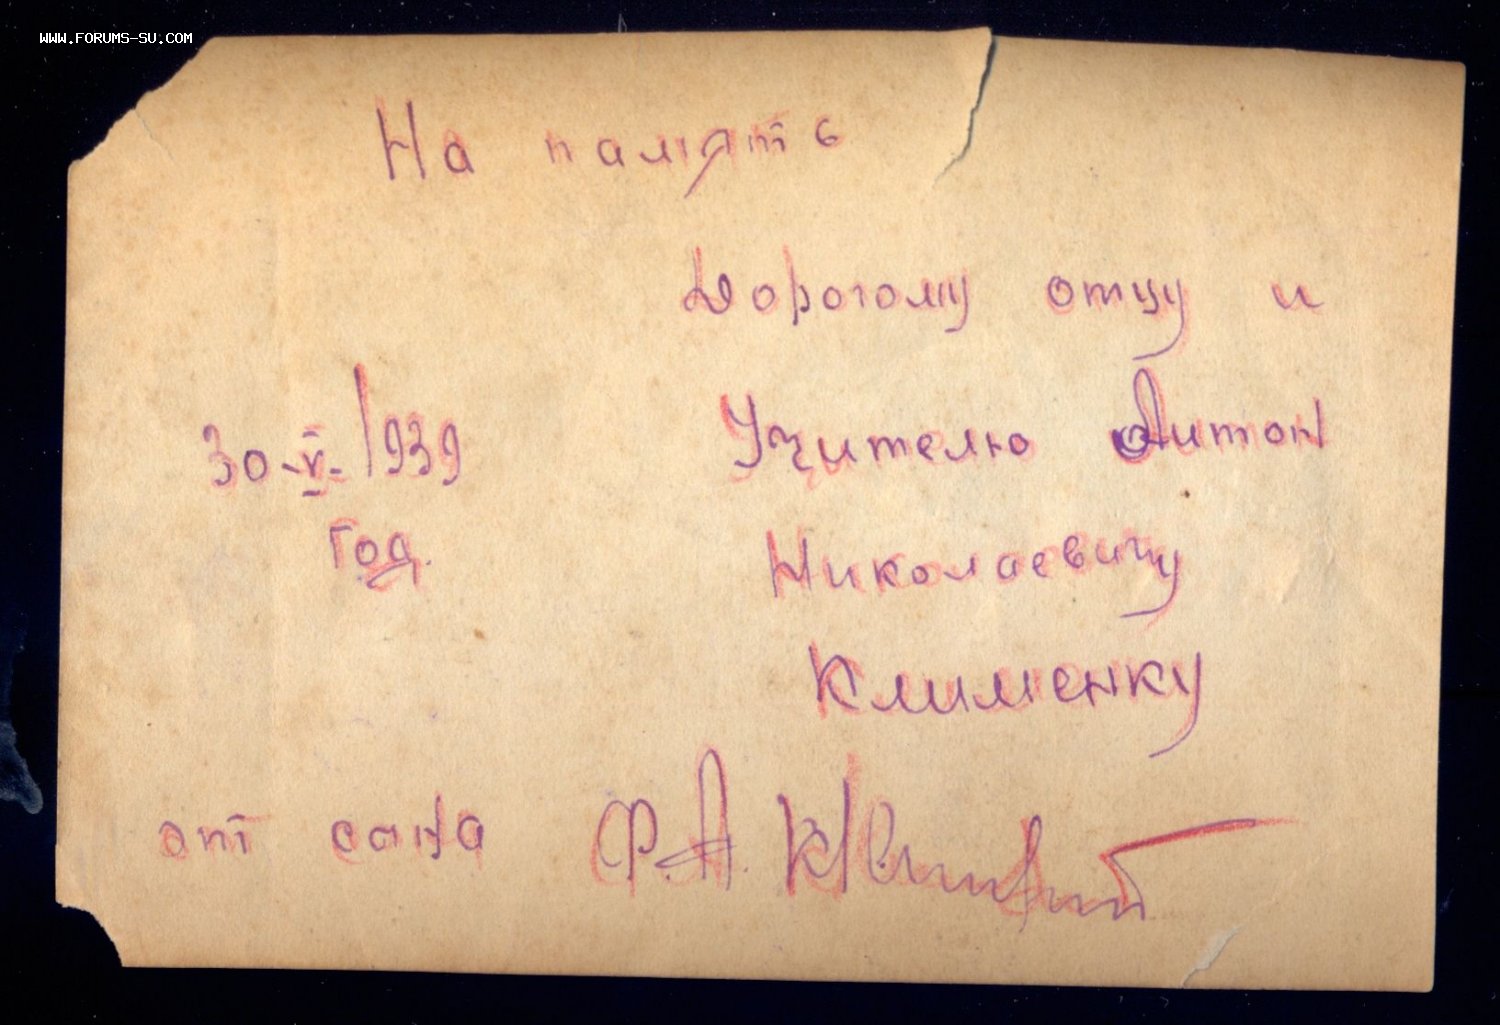 WWW.FORUMS-SU.COM
На память
Дорогому отцу и
Учителю Антон
Николаевичу
Клименку
30-V-1939
год.
от сына Ф.А.